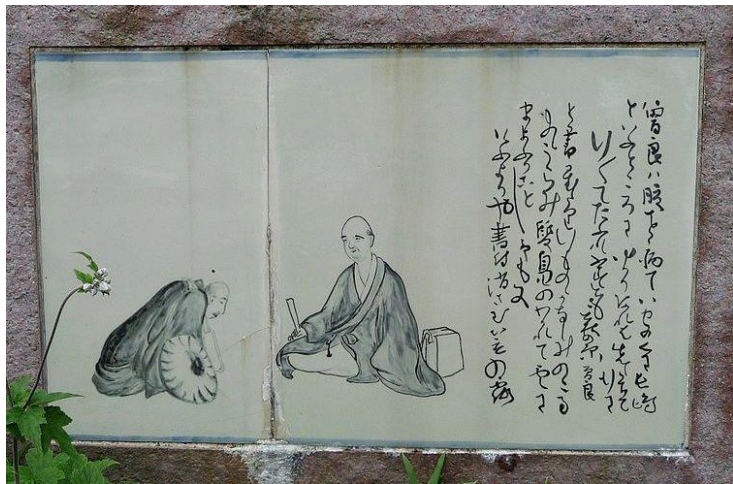 曽良ハ腹を病ていせのくに長嶋
といふところにゆかりあれば先立て行に
行〱てたふれ伏とも萩の原 曽良
と書置たり行ものゝかなしみのこる
ものゝうらみ隻鳧のわかれて雲に
まよふがことし予も又
けふよりや書付消さむ笠の露